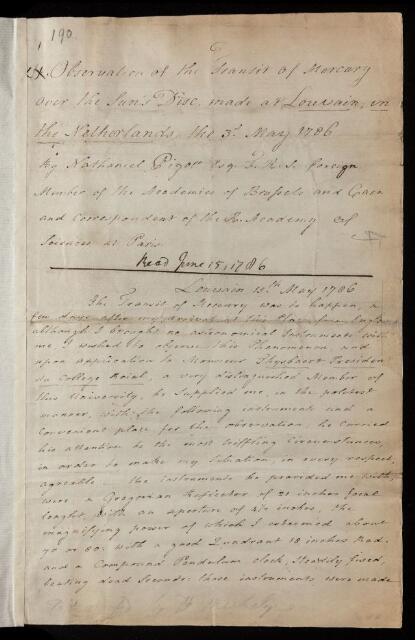 190
Observation of the Transit of Mercury
over the Sun's Disc, made at Louvain, in
the Netherlands, the 3d May 1786
By Nathaniel Pigott Esq. F.R.S. foreign
Member of the Academies of Brussels and Caen
and Correspondent of the R. Academy of
Sciences at Paris
Read June 15, 1786
Louvain 12th May 1786
The Transit of Mercury was to happen, a
few days after my arrival at this place from
although I brought no astronomical Instruments with
me, I wished to observe this Phenomenon, and
upon application to Monsieur President
du College Roial, a very distinguished Member of
this University, he supplied me, in the politest
manner, with the following instruments and a
convenient place for the observation; he carried
his attention to the most triffling Circumstances,
in order to make my Situation, in every respect,
agreable the instruments he provided me with,
were a Gregorian Reflector of 21 inches focal
lenght with an aperture of six inches, the
magnifying power of which I esteemed about
70 or 80. with a good Quadrant 18 inches Rad.
and a Compound Pendulum clock, steadily fixed,
beating dead Seconds: these instruments were made